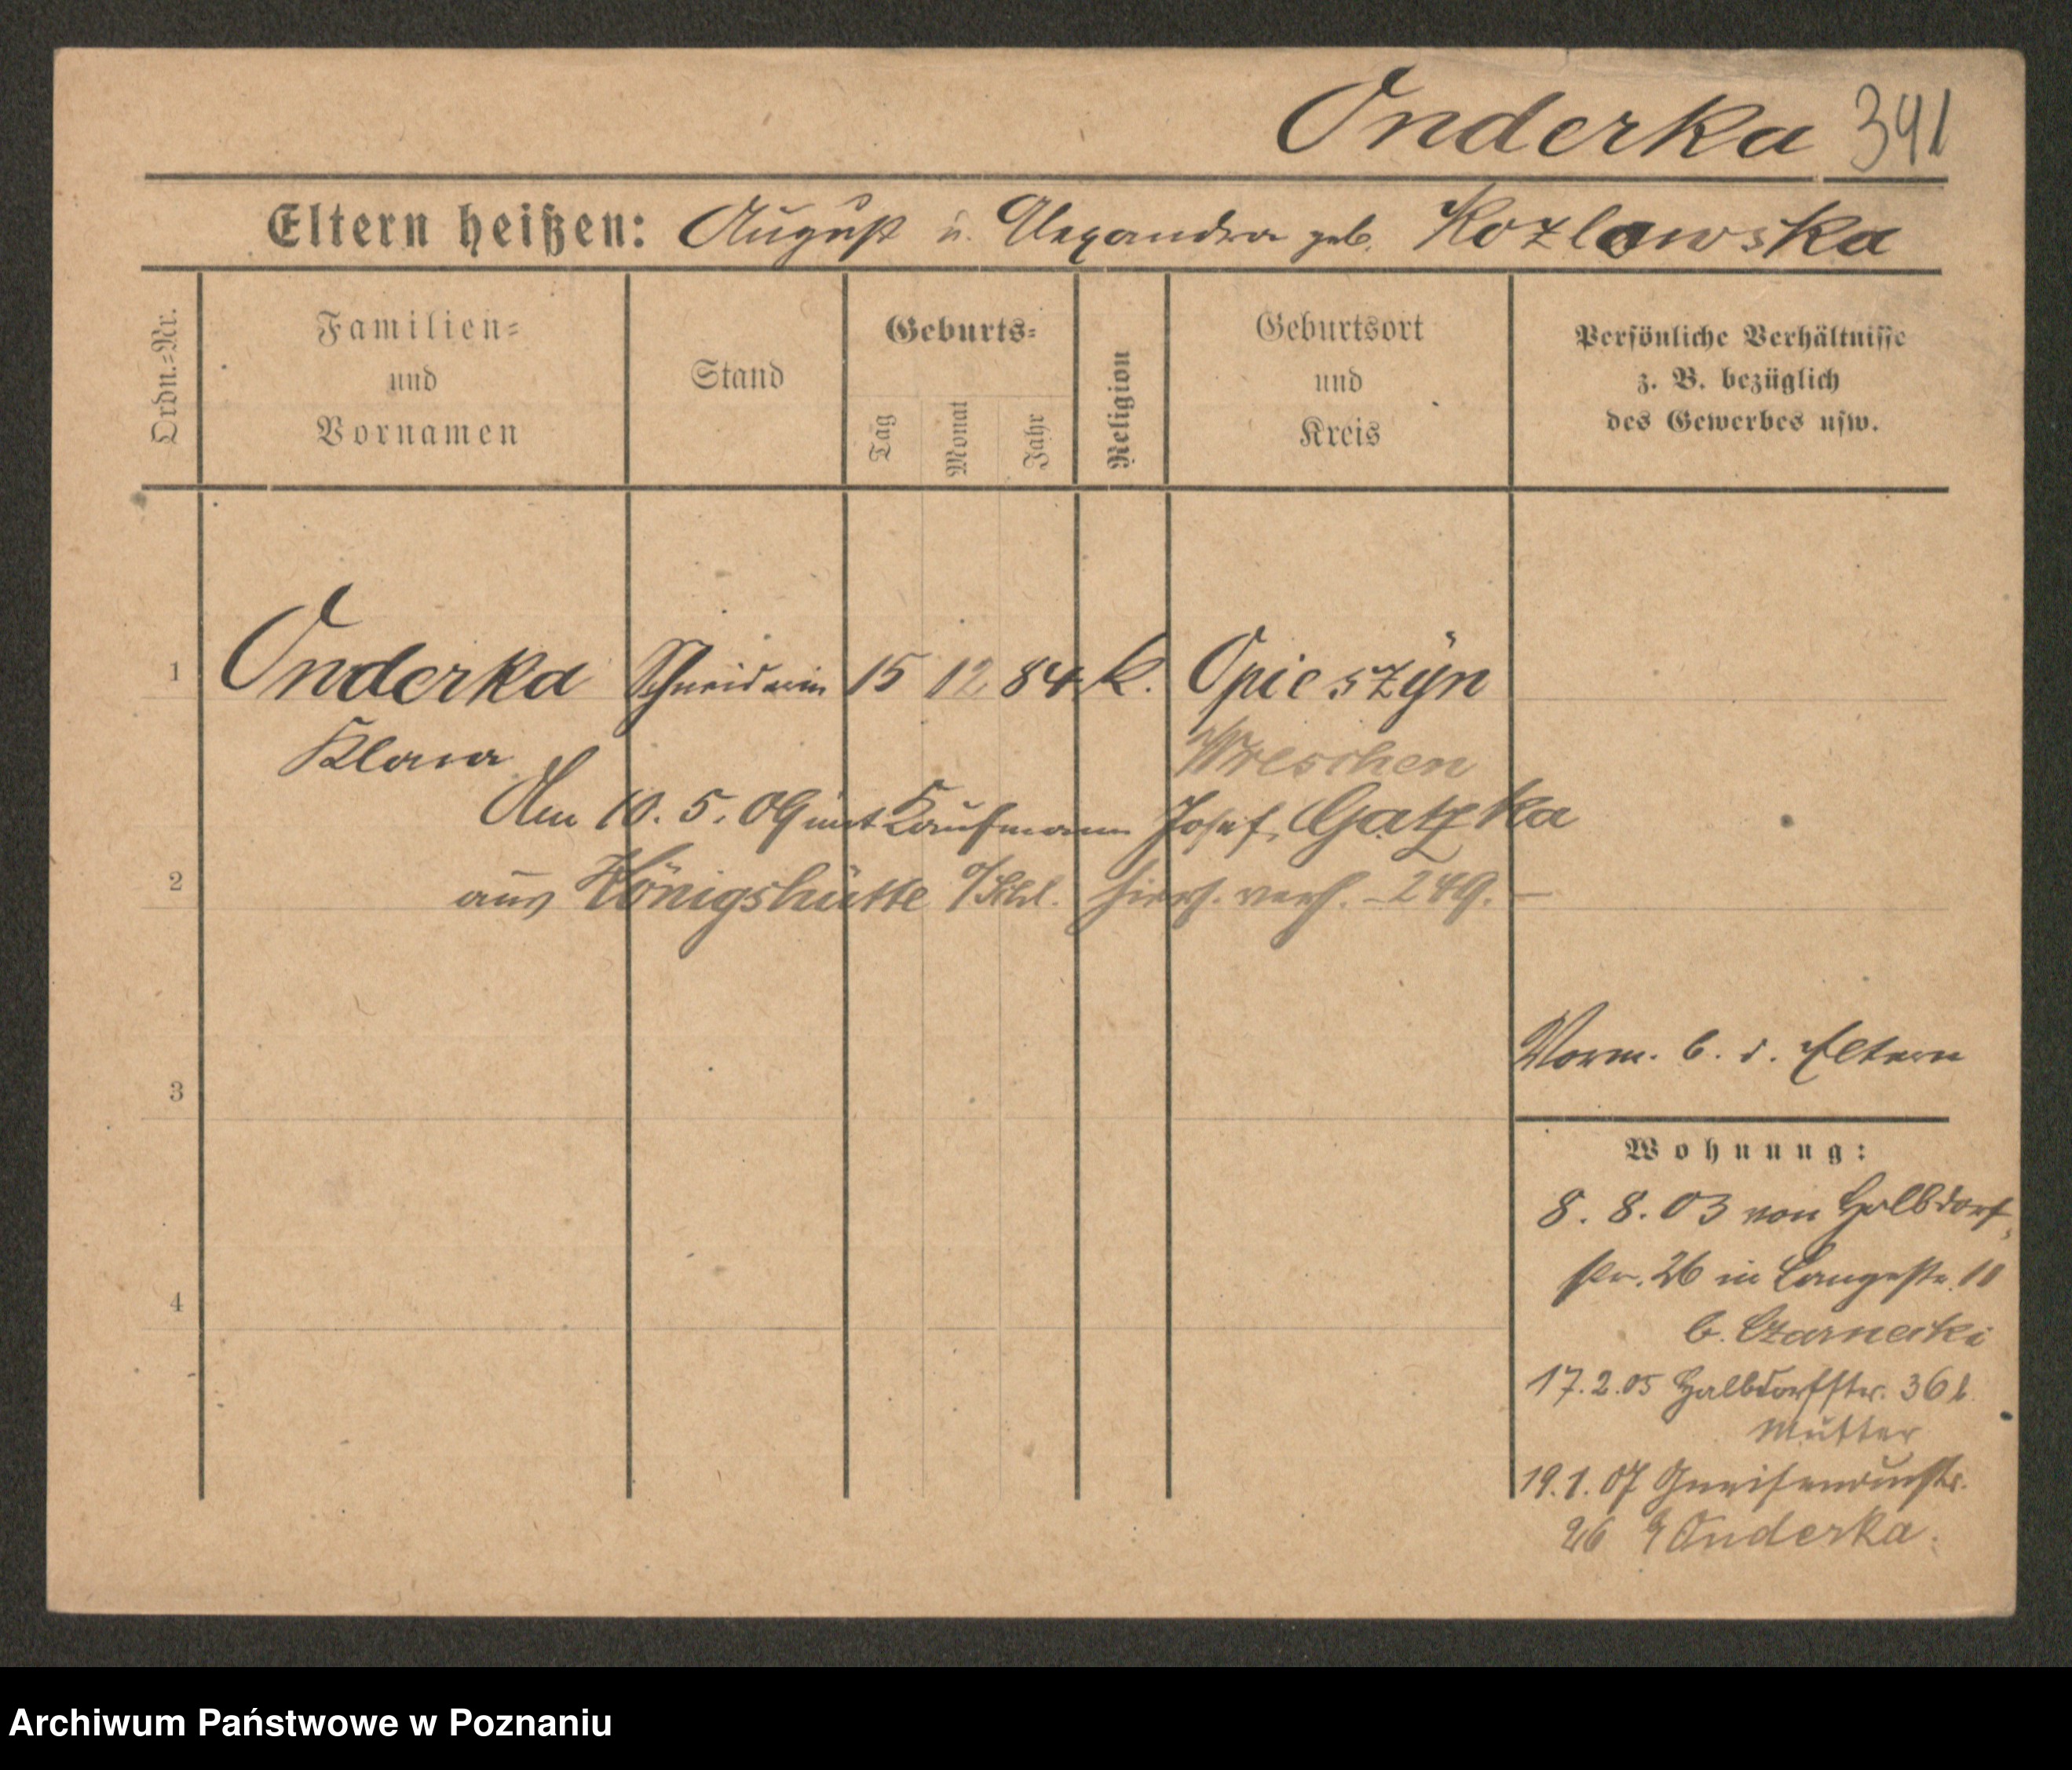 Onderka 341
Eltern heißen: August u. Alexandra geb. Kozlawska
Ordn.=Nr.
Familien=
und
Vornamen
Stand
Geburts=
Tag
Monat
Jahr
Religion
Geburtsort
und
Kreis
Persönliche Verhältnisse
z. B. bezüglich
des Gewerbes usw.
1 Onderka Schneiderin 15 12 84 k. Opieszyn
Klara Wreschen
Am 10. 5. 09 mit Kaufmann Josef Gatzka
2 aus Königshütte O/Schl. hiers. verh. - 249. -
3
Vorm. b. d. Eltern
Wohnung:
8. 8. 03 von Halbdorf-
str. 26 in Langestr. 11
b. Czarnecki
4
17. 2. 05 Halbdorfstr. 36 b.
Mutter
19. 1. 07 Gneisenaustr.
26 Onderka.
Archiwum Państwowe w Poznaniu